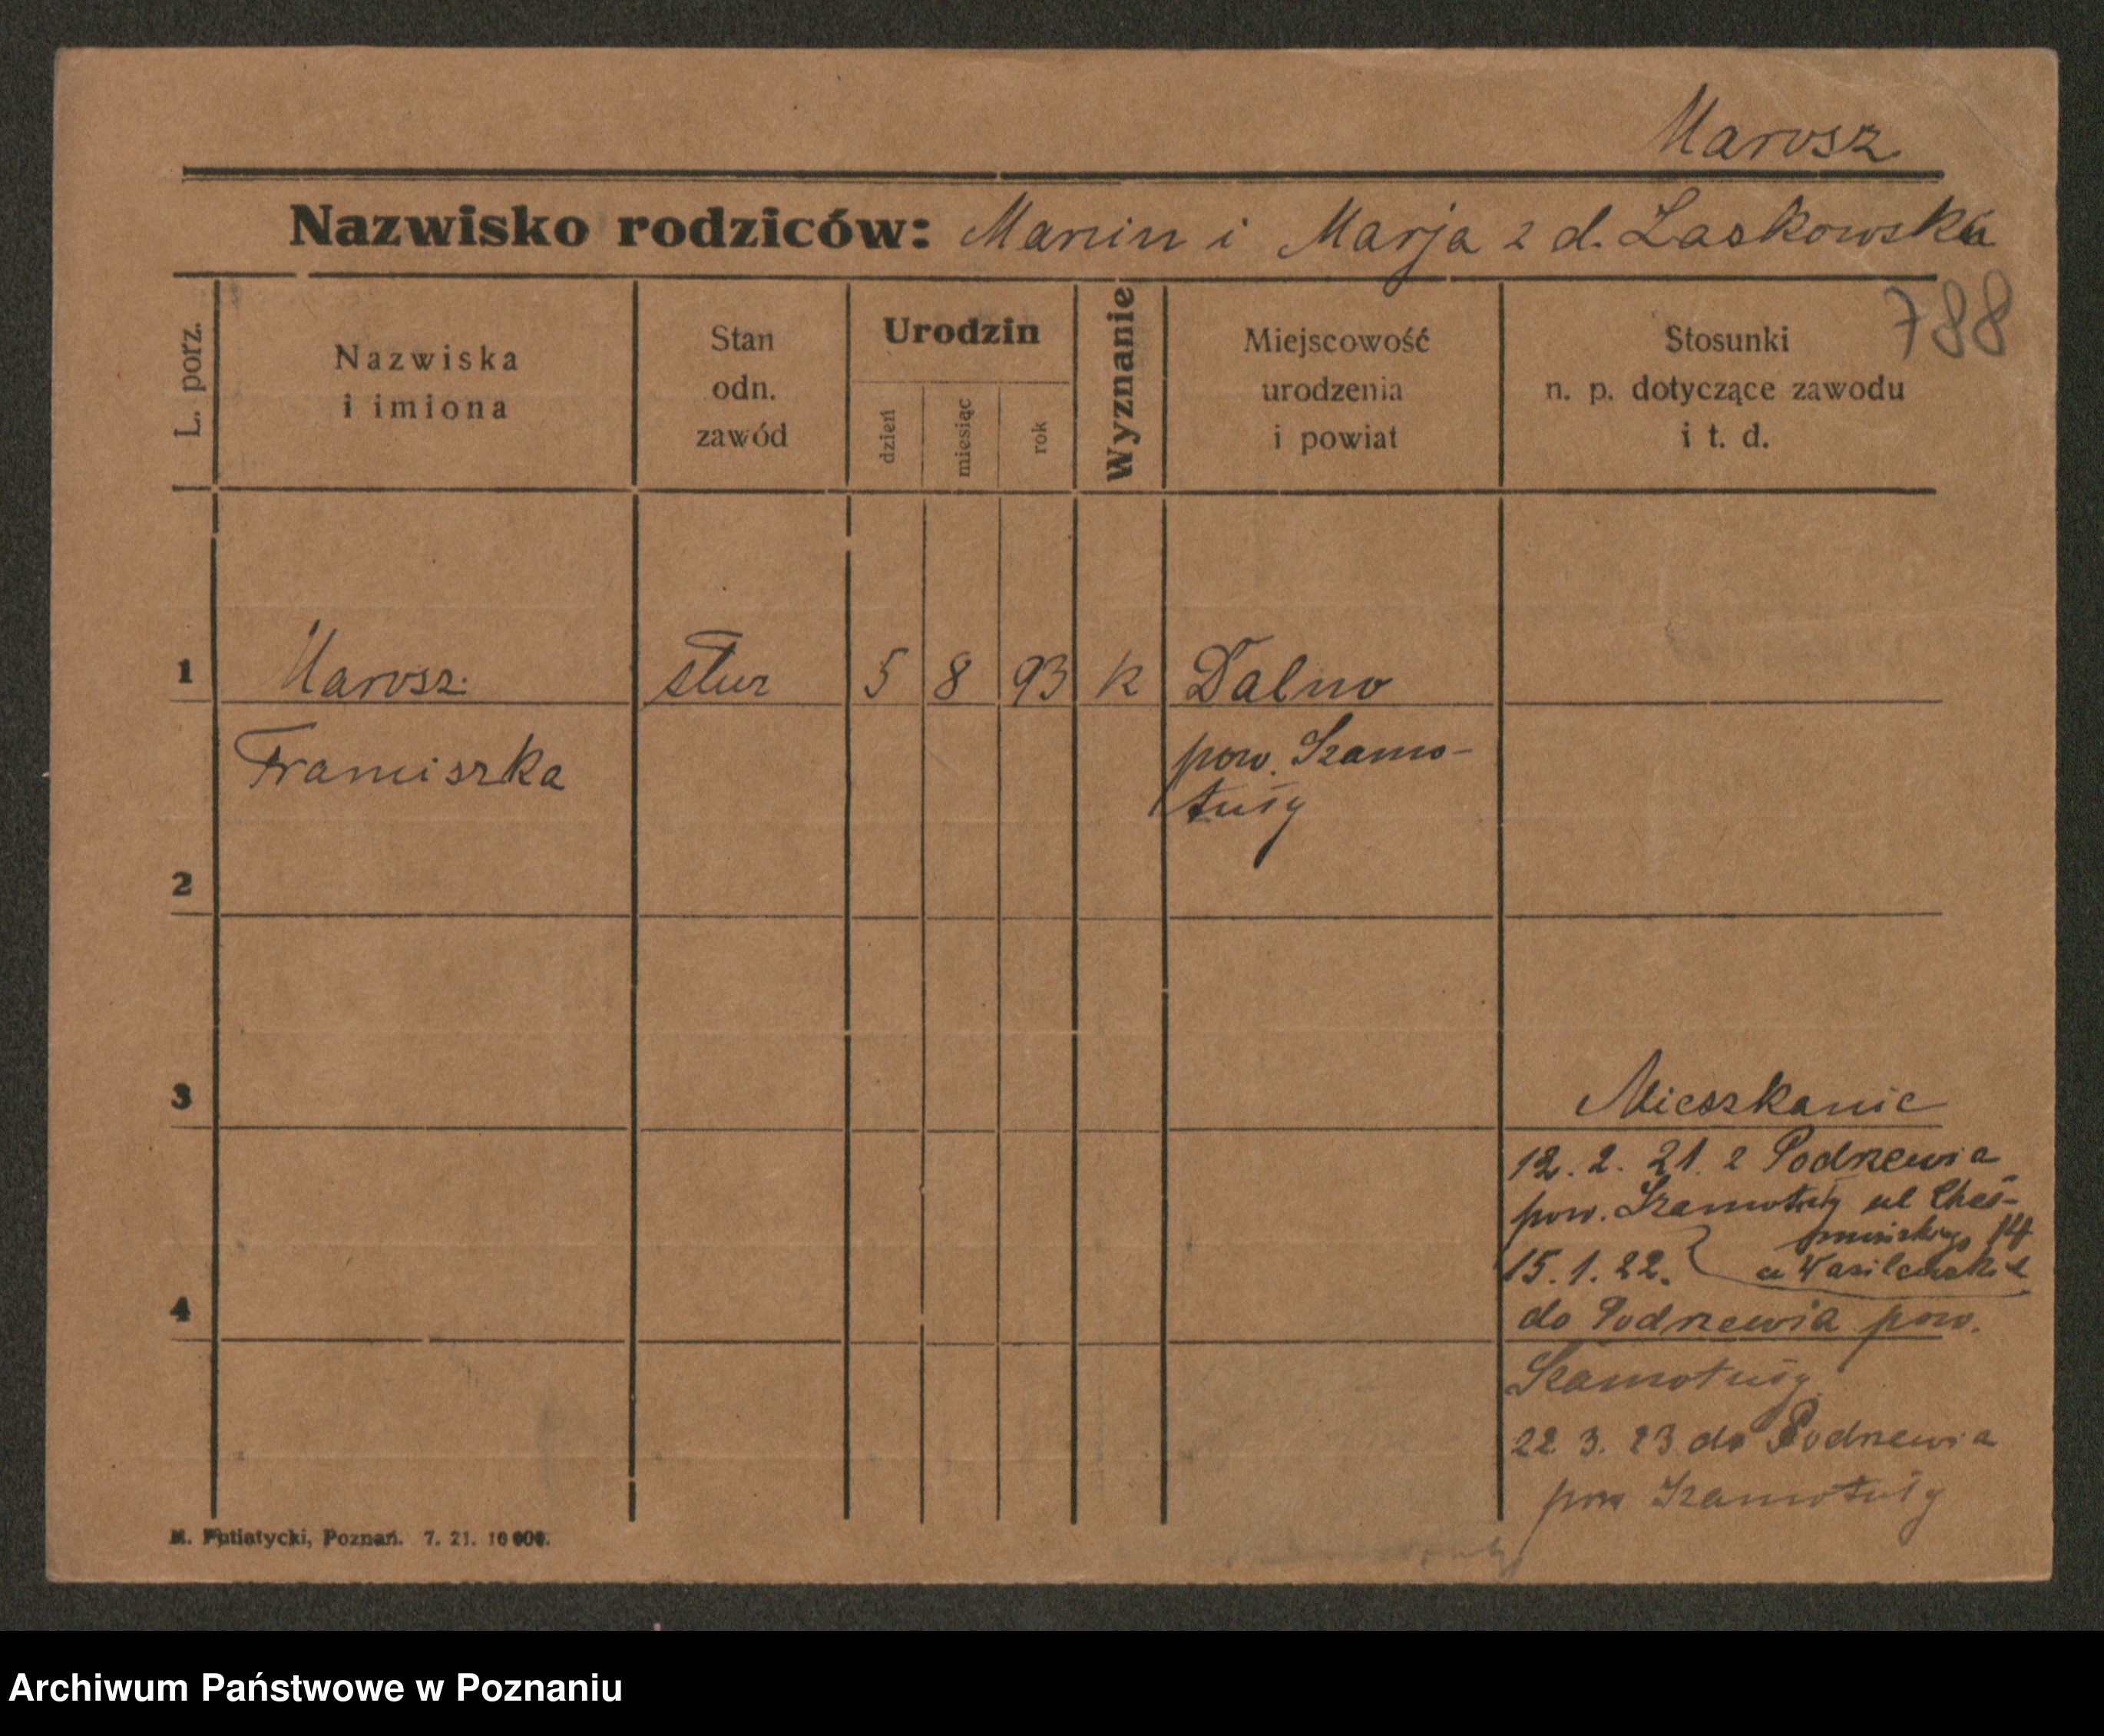 Marosz
Nazwisko rodziców: Marcin i Marja z d. Laskowska
788
L. porz.
Nazwiska
i imiona
Stan
odn.
zawód
Urodzin
dzień
miesiąc
rok
Wyznanie
Miejscowość
urodzenia
i powiat
Stosunki
n. p. dotyczące zawodu
i t. d.
1 Marosz służ 5 8 93 k Dalno
Franciszka pow. Szamo-
tuły
2
3
Mieszkanie
12. 2. 21. z Podrzewia
pow. Szamotuły ul
14
15. 1. 22. u Wasilewskie
4
do Podrzewia pow.
Szamotuły
22. 3. 23 do Podrzewia
pow Szamotuły
M. Putiatycki, Poznań. 7. 21. 10000.
Archiwum Państwowe w Poznaniu